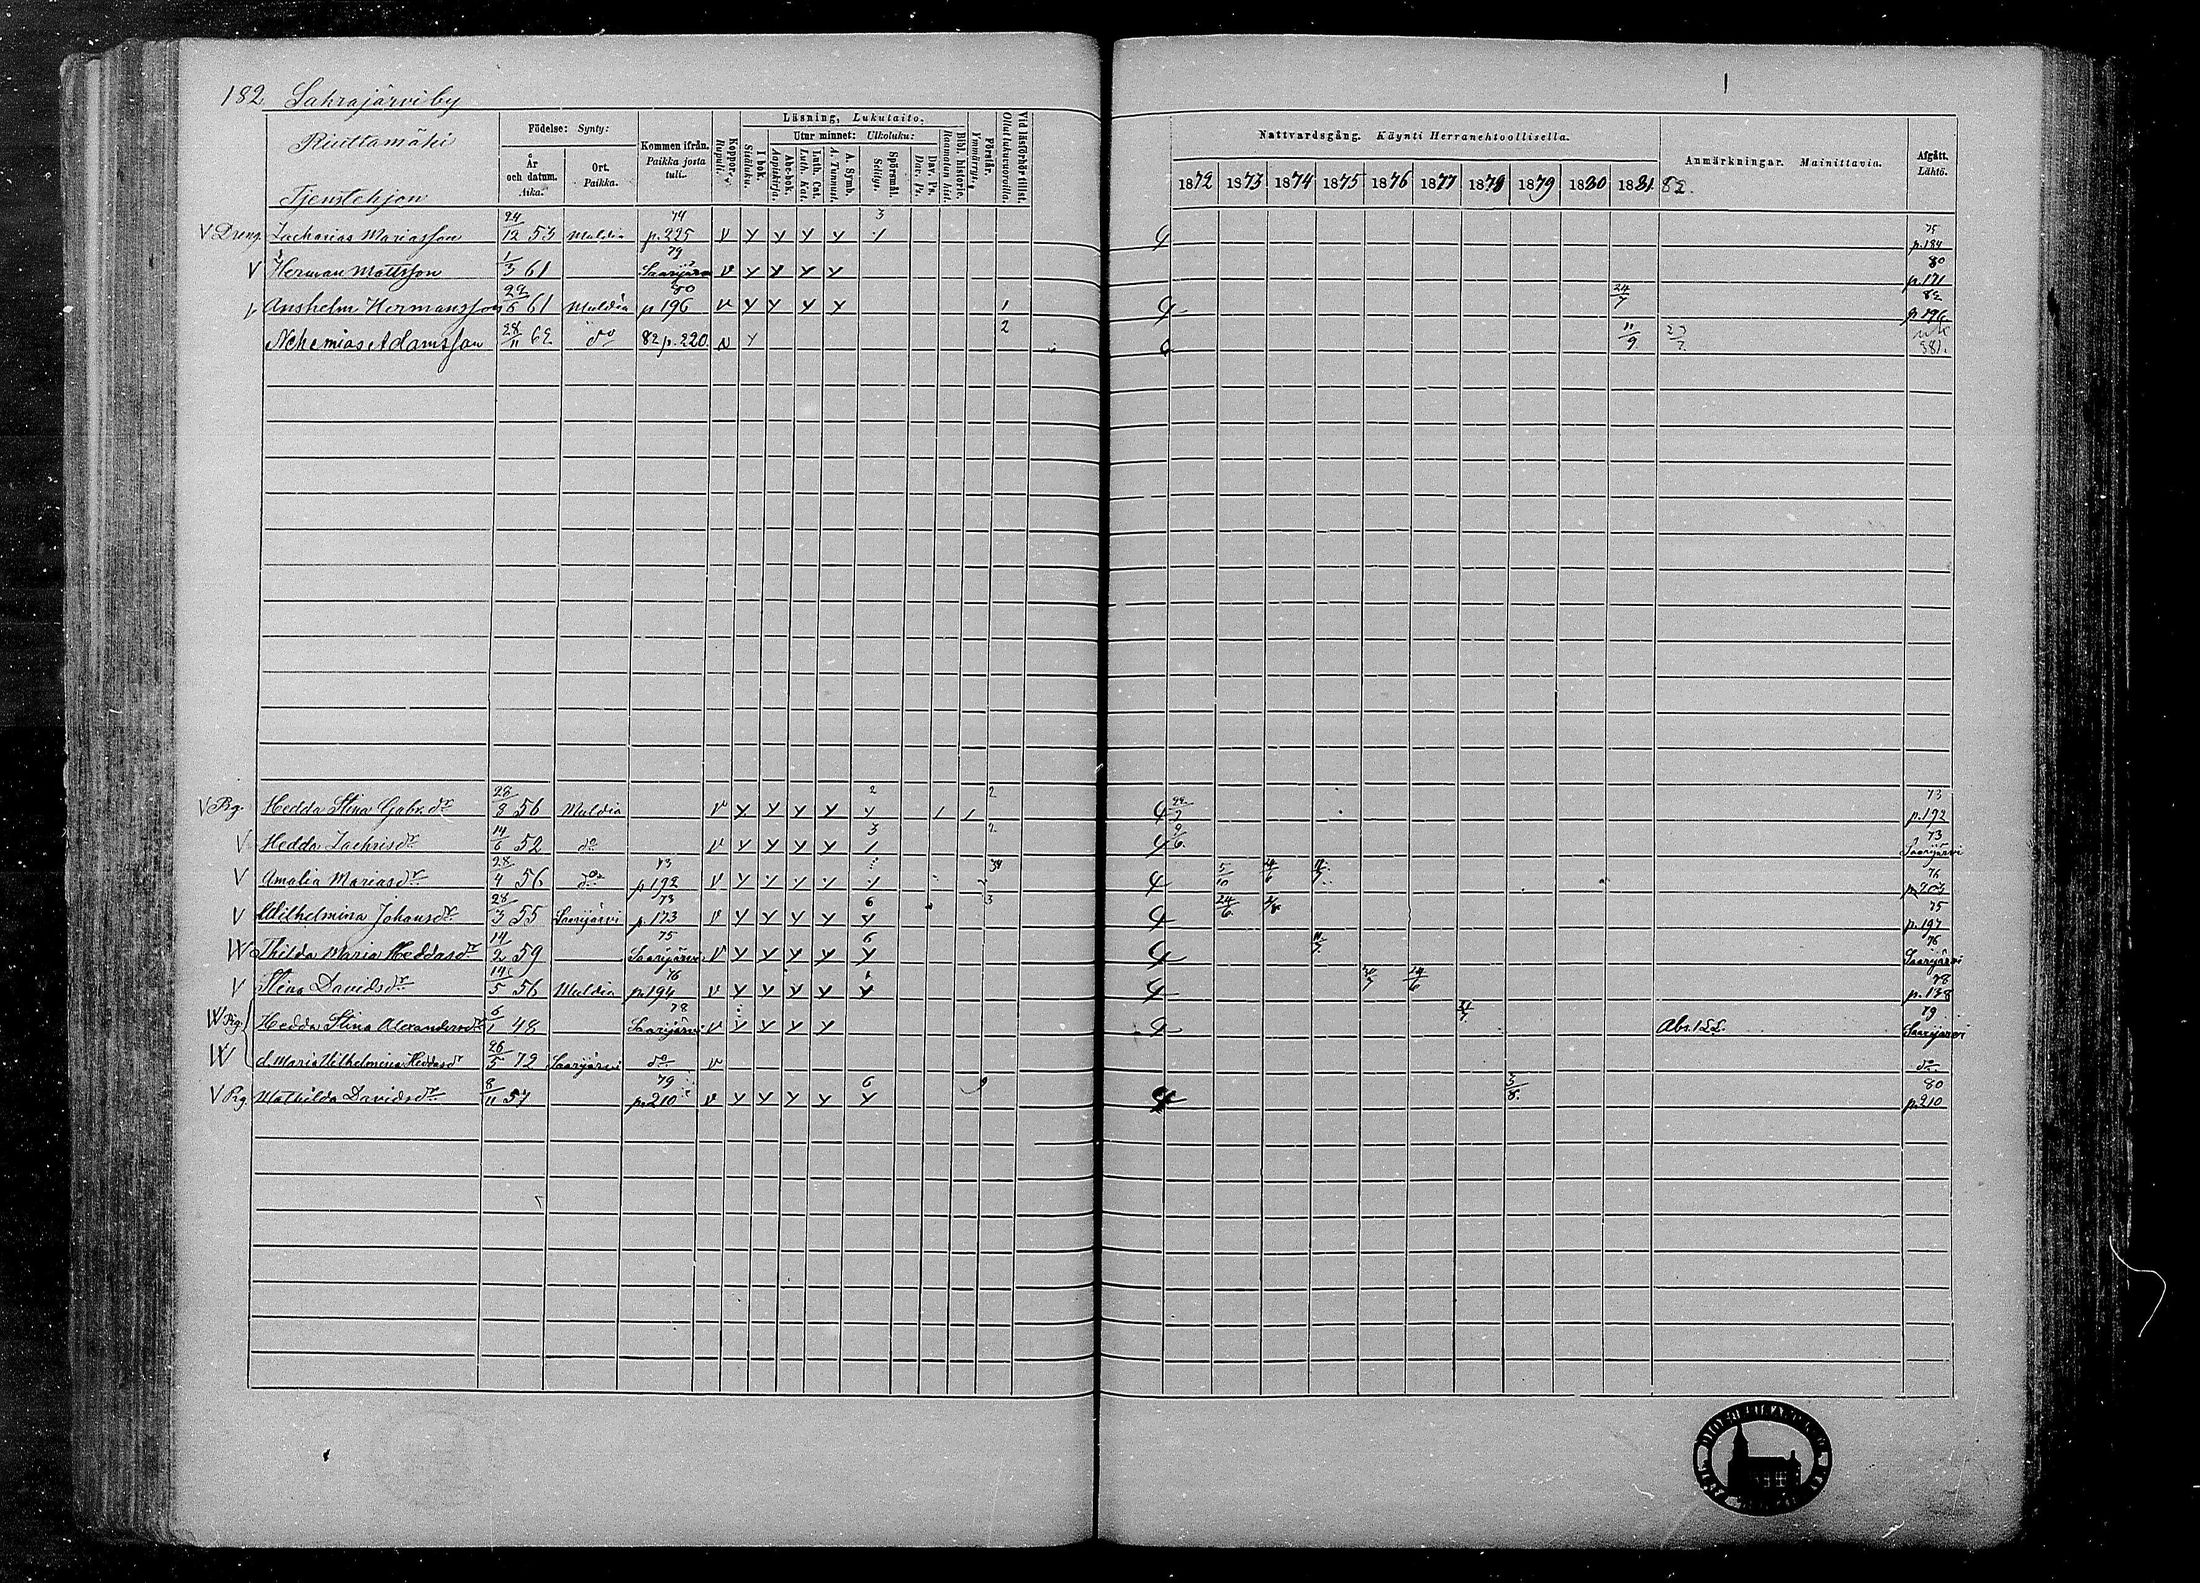 182. Sahrajärvi by
Riuttamäki
Tjenstehjon
Födelse: Synty:
År och datum. Aika.
Ort. Paikka.
Kommen ifrån. Paikka josta tuli.
Koppor. Rupuli.
Läsning, Lukutaito.
I bok. Sisäluku.
Utur minnet: Ulkoluku:
Abc-bok. Aapiskirja.
Luth. Cat. Luth. Kat.
A. Symb. A. Tunnust.
Spörsmål. Selitys.
Dav. Ps. Dav. Ps.
Bibl. historie. Raamatun hist.
Förstår. Ymmärrys.
Vid läsförhör tillst. Ollut lukuvuoroilla.
Nattvardsgång. Käynti Herranehtoollisella.
1872 1873 1874 1875 1876 1877 1878 1879 1880 1881 82.
Anmärkningar. Mainittavia.
Afgått. Lähtö.
V Dreng. Zacharias Mariasson 24/12 53 Muldia 74 p. 225 V Y Y Y Y 3 75 p. 184
V Herman Mattsson 1/3 61 79 Saarijärvi V Y Y Y Y 80 p. 171
V Anshelm Hermansson 22/6 61 Muldia 80 p 196 V Y Y Y Y 1 24/7 82 p. 196
Nehemias Adamsson 28/11 62 do 82 p. 220 V Y 2 11/9 381.
V Pig. Hedda Stina Gabr.dr 28/8 56 Muldia V Y Y Y Y 2 Y 2 73 p. 192
V Hedda Zachrisdr 14/6 52 do V Y Y Y Y 3 9/6 73 Saarijärvi
V Amalia Mariasdr 28/4 56 do 73 p 192 V Y 5/10 76 p 203
V Wilhelmina Johansdr 28/3 55 Saarijärvi 73 p. 173 V Y Y Y Y 6 Y 3 24/6 75 p. 197
W Thilda Maria Heddasdr 14/2 59 75 Saarijärvi V Y Y Y Y 6 Y 11/7 76 Saarijärvi
V Stina Davidsdr 14/5 56 Muldia 76 p. 194 V Y Y Y Y Y 24/6 78 p. 138
W Pig. Hedda Stina Alexandersdr 6/1 48 78 Saarijärvi V Y Y Y Y Abs. 1 LL. 79 Saarijärvi
W d. Maria Wilhelmina Heddasdr 26/5 72 Saarijärvi do V do
V Pig. Mathilda Davidsdr 8/11 57 79 p. 210 V Y Y Y Y 6 Y 3/8 80 p. 210